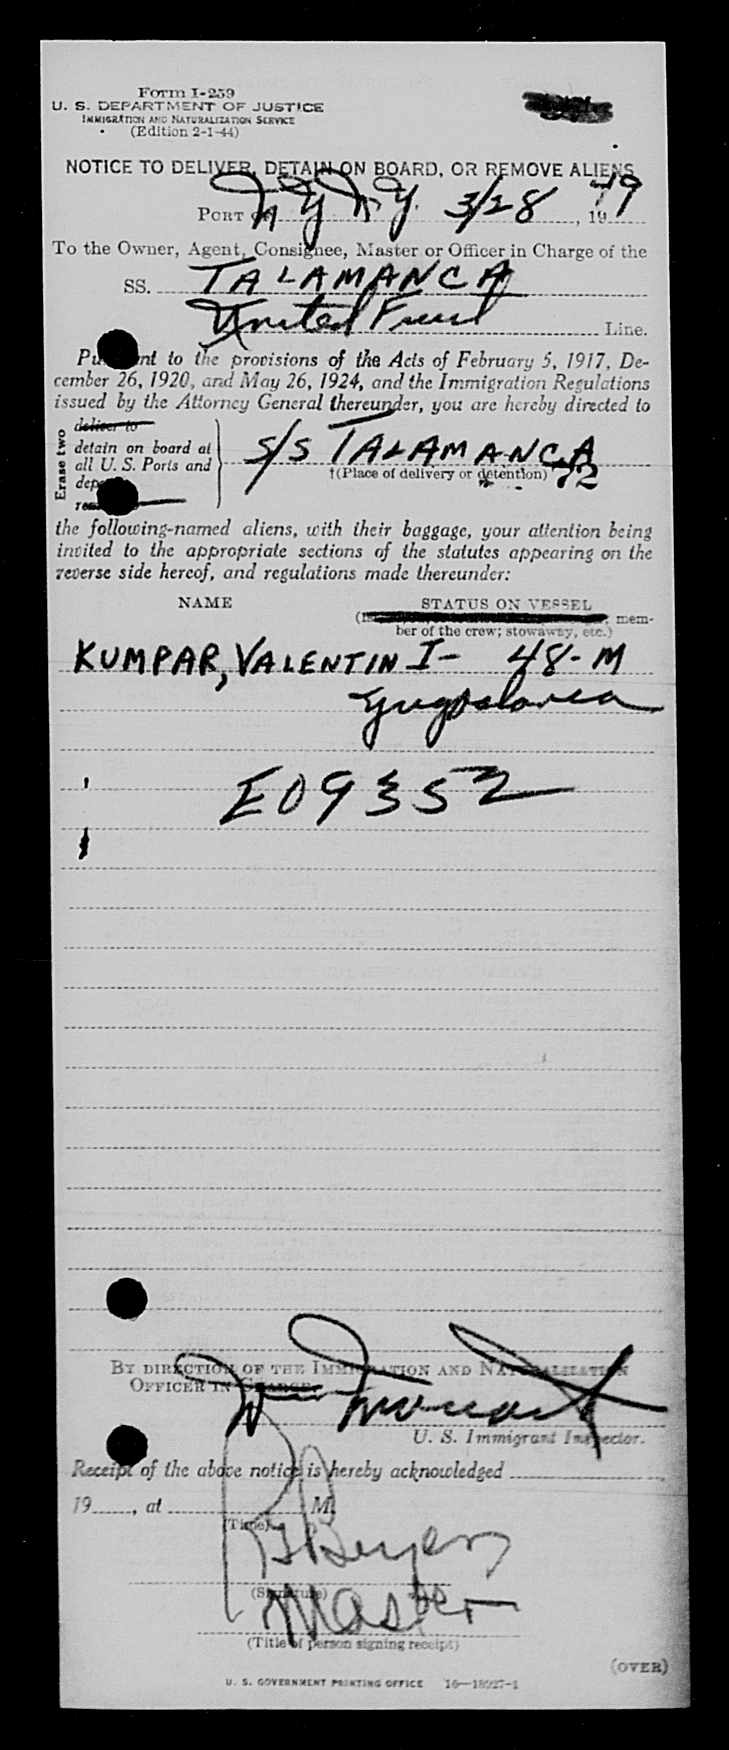 Form I-259
U. S. DEPARTMENT OF JUSTICE
IMMIGRATION AND NATURALIZATION SERVICE
(Edition 2-1-44)
NOTICE TO DELIVER, DETAIN ON BOARD, OR REMOVE ALIENS
PORT OF N Y N Y. 3/28, 19
To the Owner, Agent, Consignee, Master or Officer in Charge of the
SS. TALAMANCA
United Fruit Line.
Pursuant to the provisions of the Acts of February 5, 1917, De-
cember 26, 1920, and May 26, 1924, and the Immigration Regulations
issued by the Attorney General thereunder, you are hereby directed to
Erase two
deliver to
detain on board at
all U. S. Ports and
S/S TALAMANCA
†(Place of delivery or detention)
the following-named aliens, with their baggage, your attention being
invited to the appropriate sections of the statutes appearing on the
reverse side hereof, and regulations made thereunder:
NAME STATUS ON VESSEL
mem-
ber of the crew; stowaway, etc.)
KUMPAR, VALENTIN I- 48-M
Yugoslavia
E09352
BY DIRECTION OF THE IMMIGRATION AND NATURALIZATION
OFFICER IN CHARGE
U. S. Immigrant Inspector.
Receipt of the above notice is hereby acknowledged
19, at M.
(Time)
(Signature)
Master
(Title of person signing receipt)
(OVER)
U. S. GOVERNMENT PRINTING OFFICE 16—18927-1